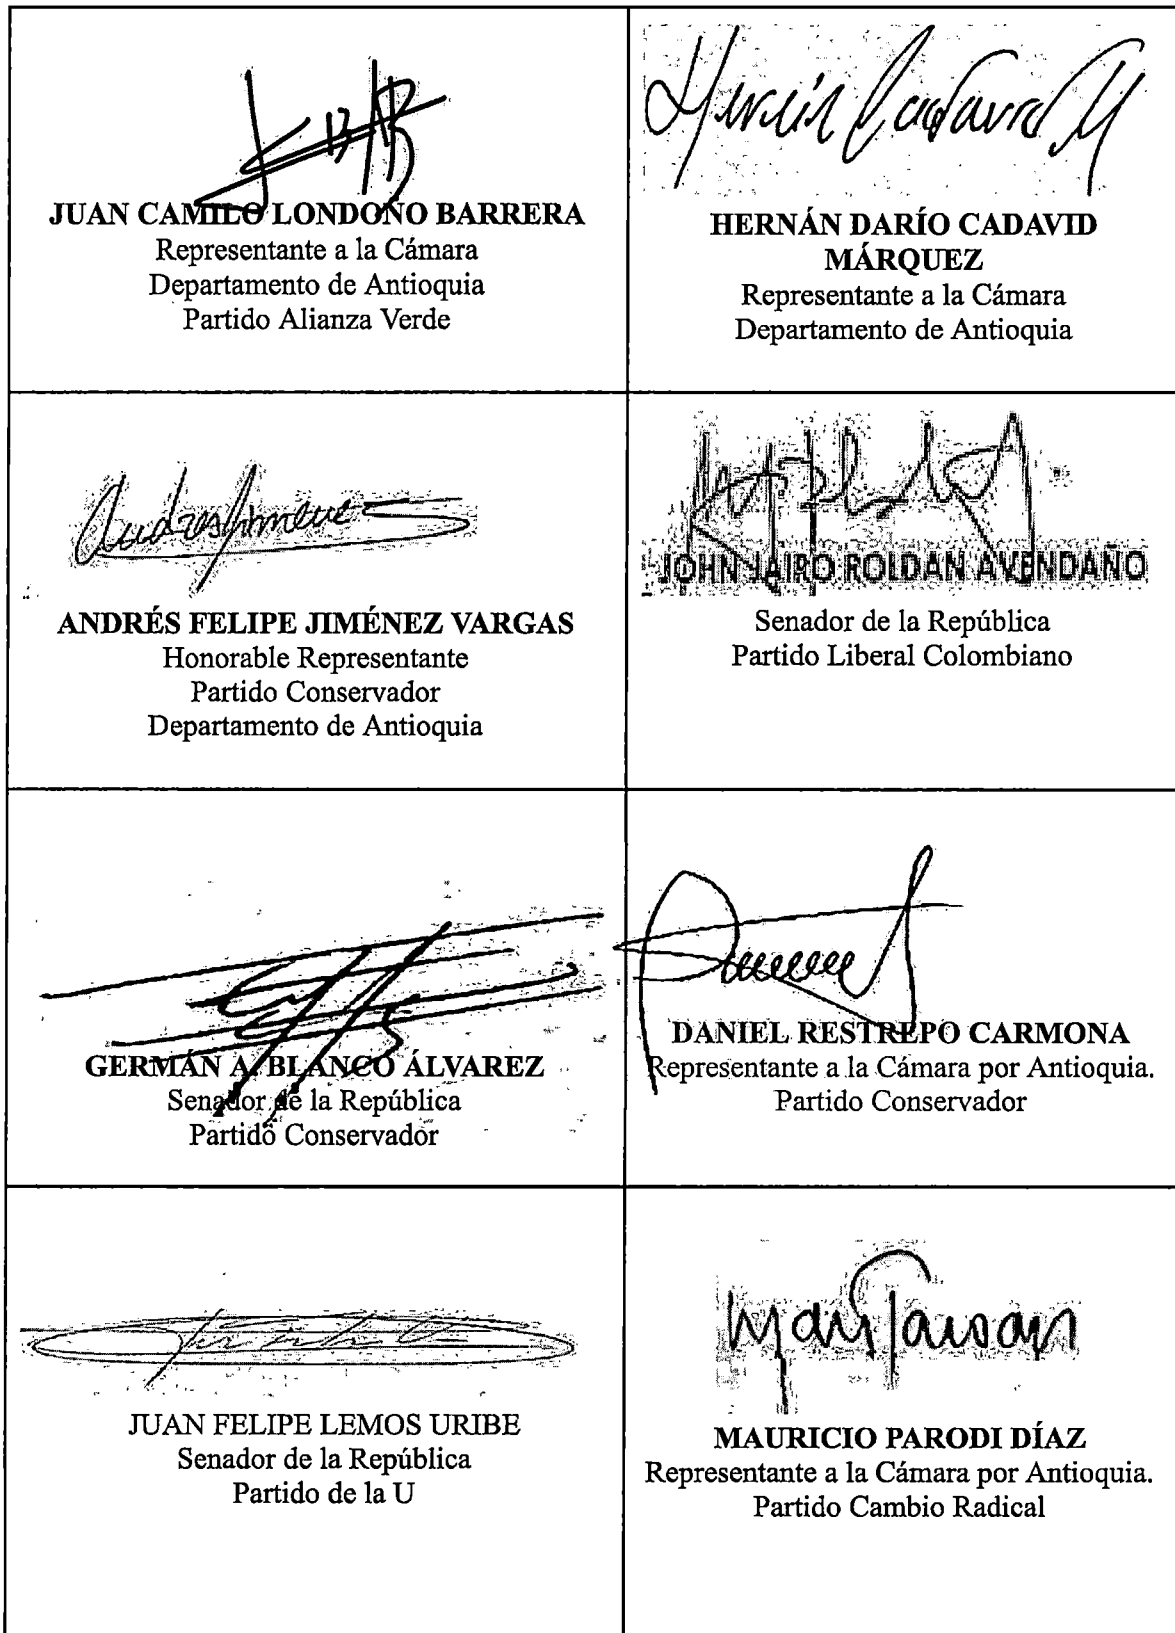 JUAN CAMILO LONDOÑO BARRERA
Representante a la Cámara
Departamento de Antioquia
Partido Alianza Verde
Hernán Cadavid M
HERNÁN DARÍO CADAVID
MÁRQUEZ
Representante a la Cámara
Departamento de Antioquia
Andres Jimenez
ANDRÉS FELIPE JIMÉNEZ VARGAS
Honorable Representante
Partido Conservador
Departamento de Antioquia
JOHN JAIRO ROLDAN AVENDAÑO
Senador de la República
Partido Liberal Colombiano
GERMÁN A. BLANCO ÁLVAREZ
Senador de la República
Partido Conservador
DANIEL RESTREPO CARMONA
Representante a la Cámara por Antioquia.
Partido Conservador
JUAN FELIPE LEMOS URIBE
Senador de la República
Partido de la U
MAURICIO PARODI DÍAZ
Representante a la Cámara por Antioquia.
Partido Cambio Radical